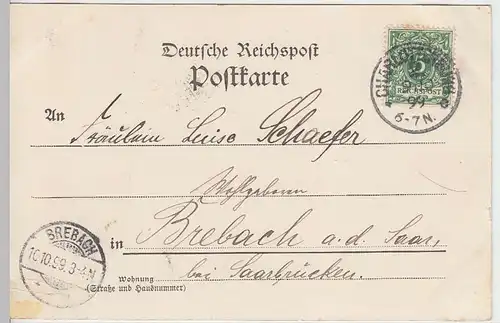 Deutsche Reichspost
Postkarte
5
REICHSPOST
99
6-7 N.
An
Fräulein Luise Schaefer
Wohlgeboren
in Brebach a. d. Saar,
bei Saarbrücken.
Wohnung
(Straße und Hausnummer)
BREBACH
10.10.99. 3-4 N